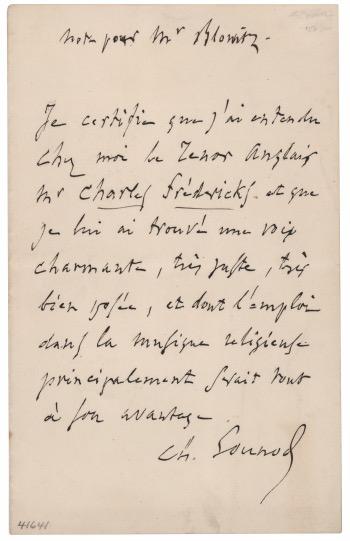 note pour Mr Blowitz.
Je certifie que j'ai entendu
chez moi le Tenor Anglais
Mr Charles Frédericks et que
je lui ai trouvé une voix
charmante, très juste, très
bien posée, et dont l'emploi
dans la musique religieuse
principalement serait tout
à son avantage.
Ch. Gounod
41641